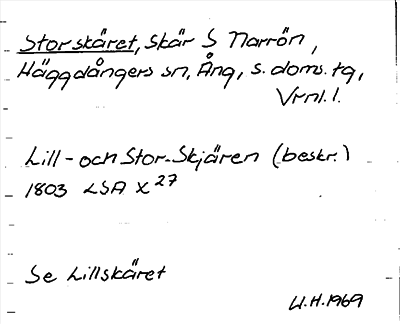 Storskäret, skär S Narrön,
Häggdångers sn, Ång, s. doms. tg,
Vrnl. l.
Lill- och Stor-Skjären (beskr.)
1803 LSA X 27
Se Lillskäret
U.H. 1969